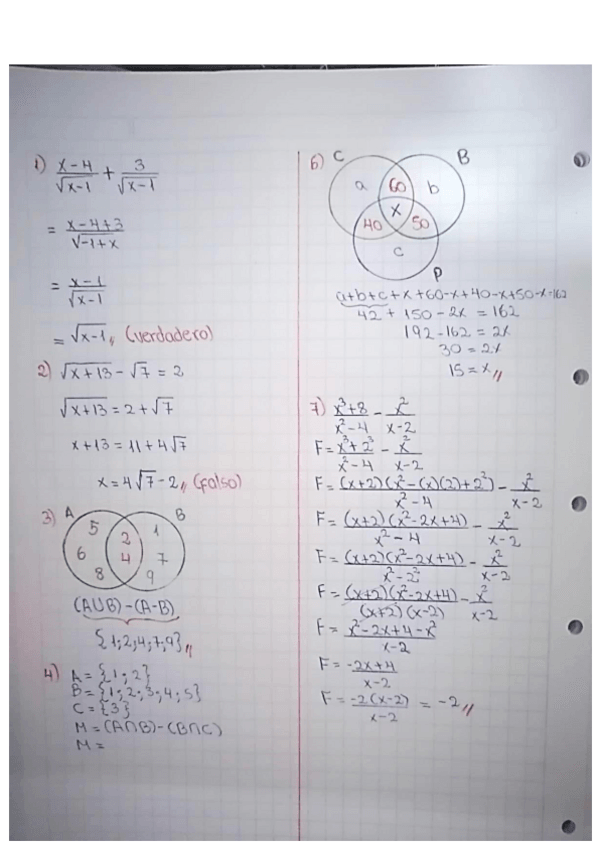 1) (x-4)/√(x-1) + 3/√(x-1)
= (x-4+3)/√(-1+x)
= (x-1)/√(x-1)
= √(x-1) ,, (verdadero)
2) √(x+13) - √7 = 2
√(x+13) = 2+√7
x+13 = 11+4√7
x = 4√7-2 ,, (falso)
3) A B
5 2 1
6 4 7
8 9
(A∪B)-(A-B)
{1;2;4;7;9} ,,
4) A = {1;2}
B = {1;2;3;4;5}
C = {3}
M = (A∩B)-(B∩C)
M =
6) C B
a 60 b
x
40 50
c
P
a+b+c+x+60-x+40-x+50-x=162
42 + 150 - 2x = 162
192-162 = 2x
30 = 2x
15 = x ,,
7) (x³+8)/(x²-4) - x²/(x-2)
F = (x³+2³)/(x²-4) - x²/(x-2)
F = (x+2)(x²-(x)(2)+2²)/(x²-4) - x²/(x-2)
F = (x+2)(x²-2x+4)/(x²-4) - x²/(x-2)
F = (x+2)(x²-2x+4)/(x²-2²) - x²/(x-2)
F = (x+2)(x²-2x+4)/(x+2)(x-2) - x²/(x-2)
F = (x²-2x+4-x²)/(x-2)
F = (-2x+4)/(x-2)
F = -2(x-2)/(x-2) = -2 ,,